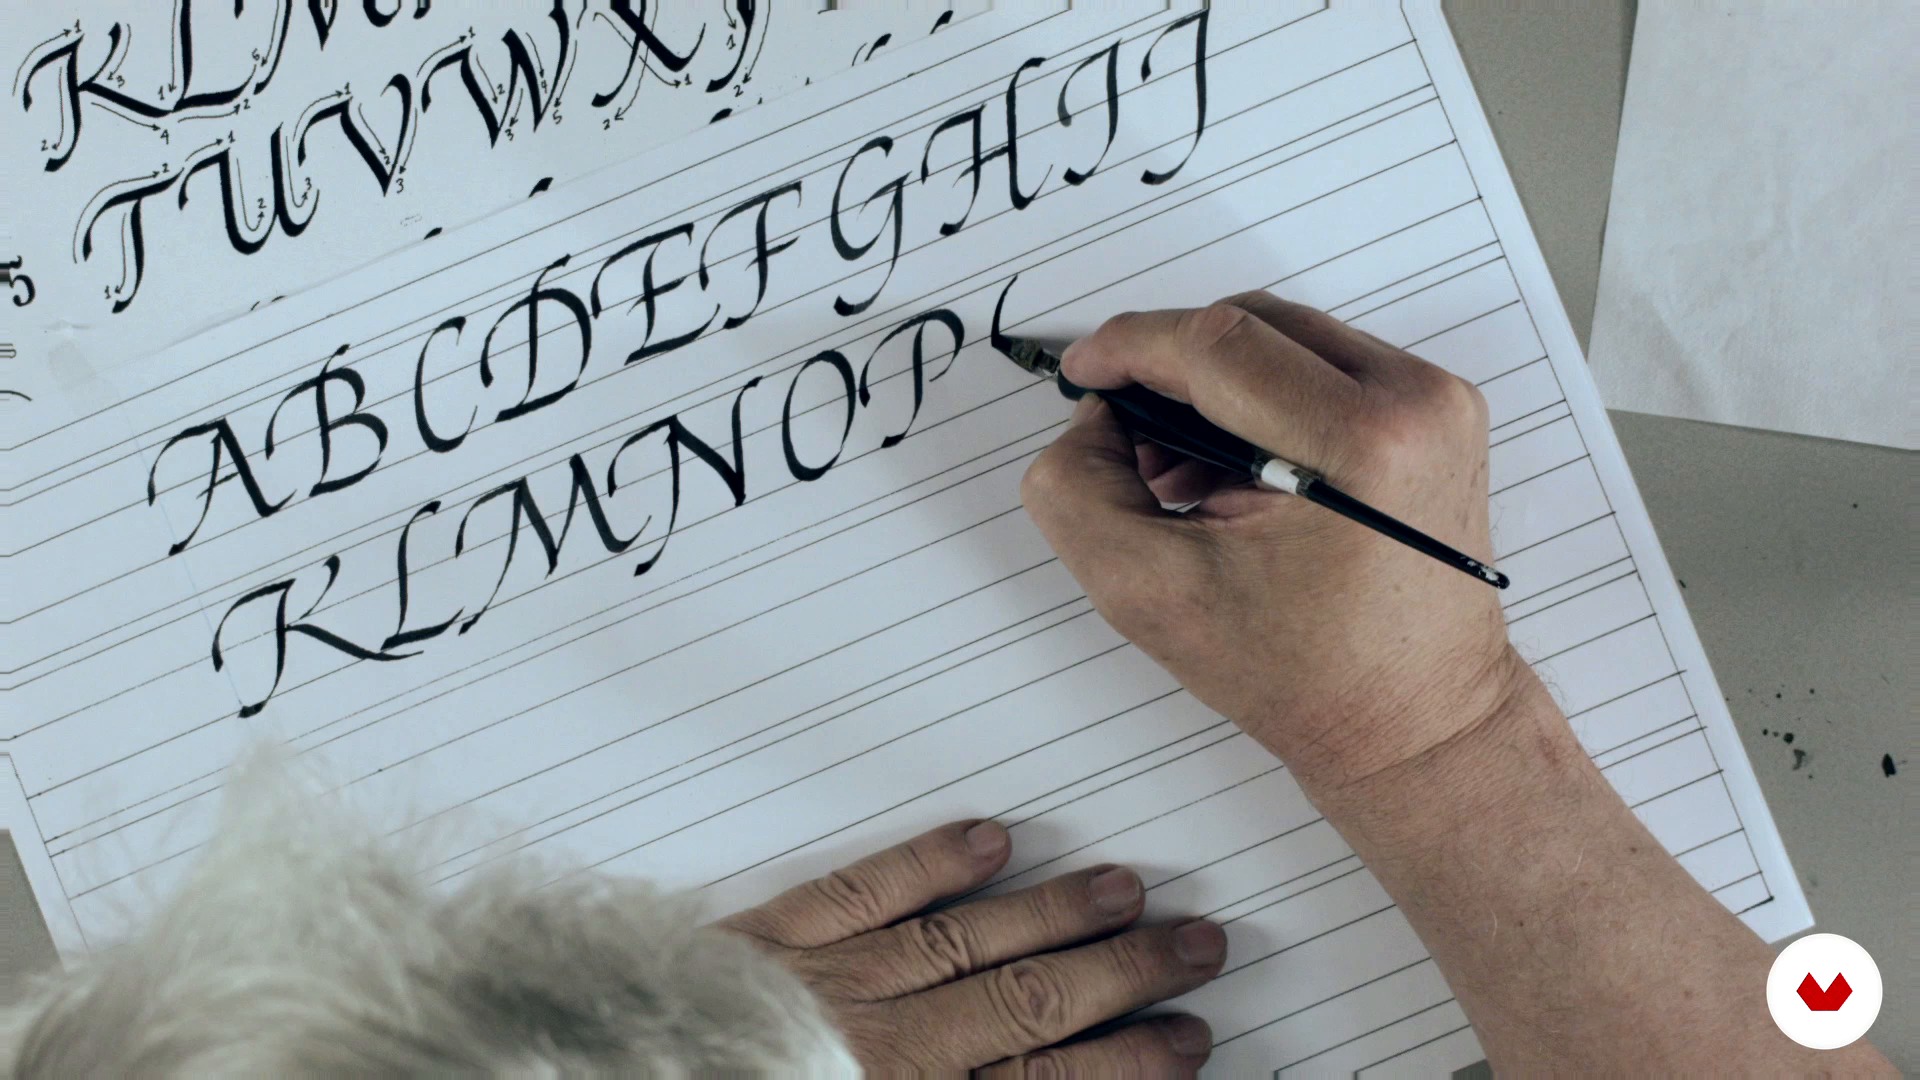 KLM
TUVWXY
5
ABCDEFGHIJ
KLMNOP